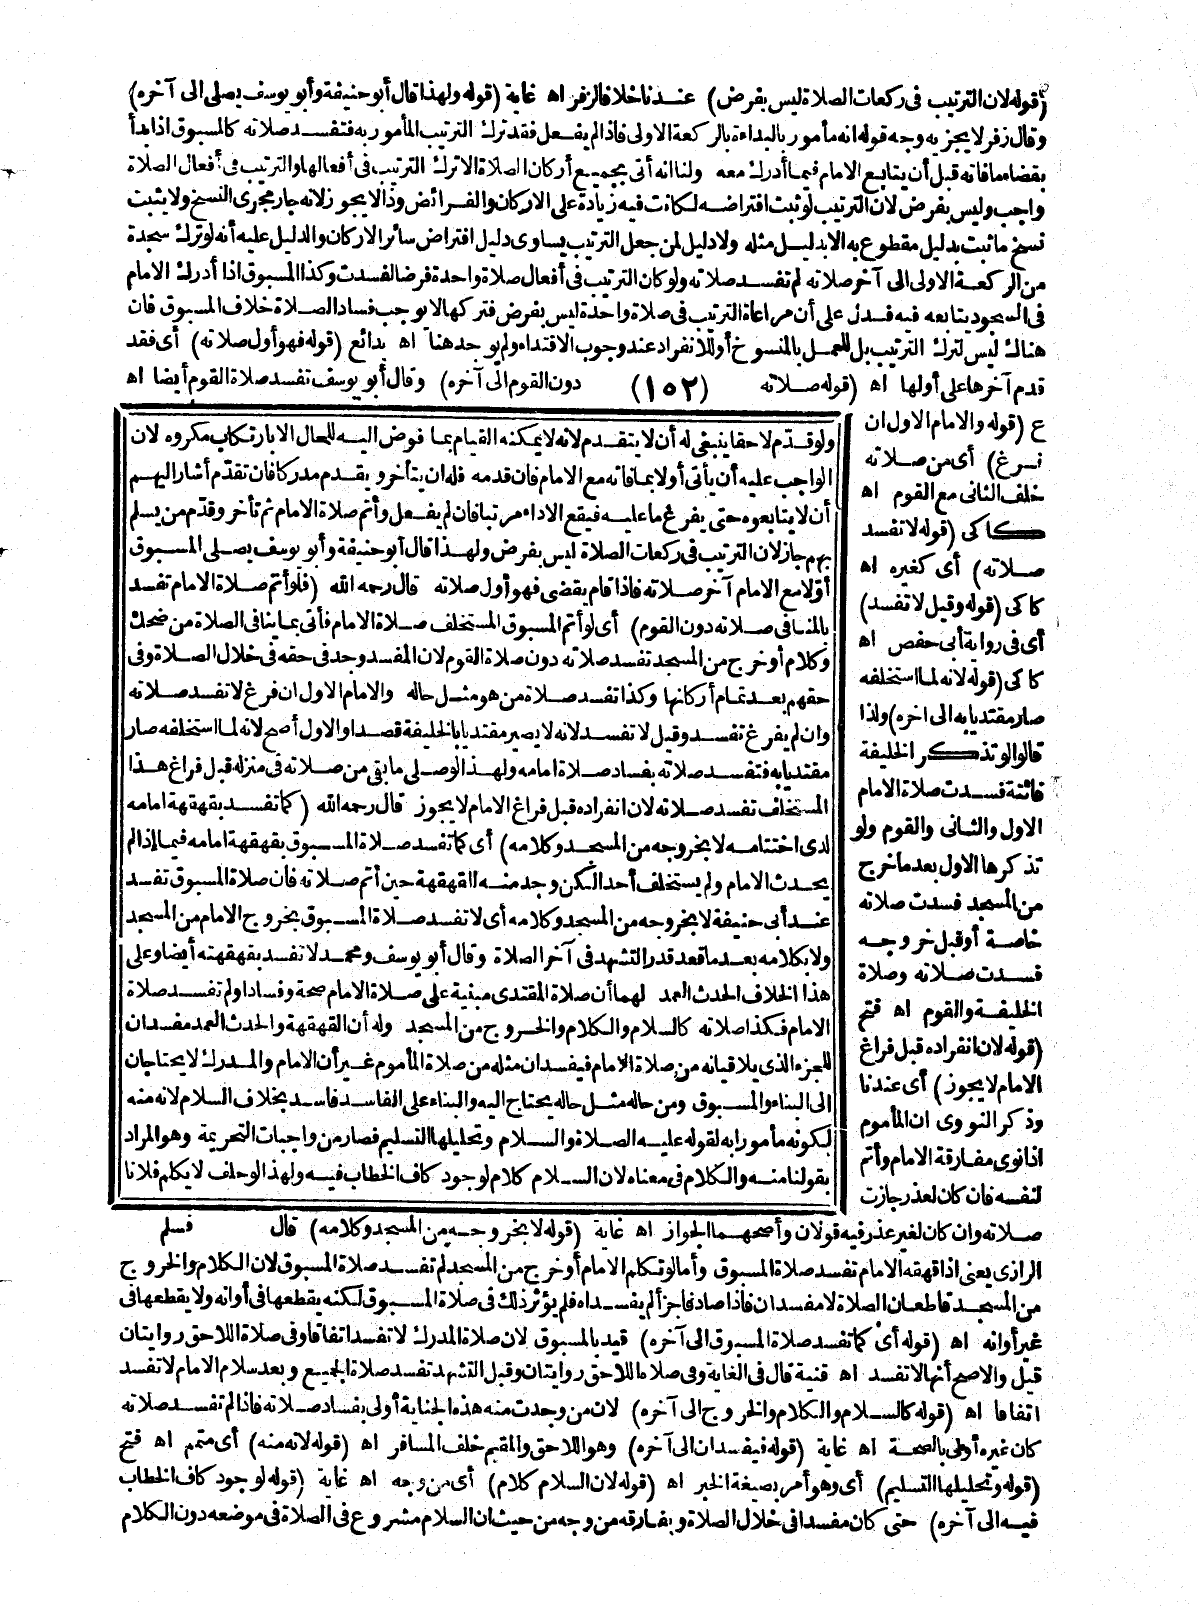 (قوله لان الترتيب في ركعات الصلاة ليس بفرض) عندنا خلافا لزفر اه غاية (قوله ولهذا قال أبو حنيفة وأبو يوسف يصلى الى آخره)
وقال زفر لا يجزيه وجه قوله انه مأمور بالبداءة بالركعة الاولى فاذا لم يفعل فقد ترك الترتيب المأمور به فتفسد صلاته كالمسبوق اذا بدأ
بقضاء ما فاته قبل أن يتابع الامام فيما أدرك معه ولنا انه أتى بجميع أركان الصلاة الا ترك الترتيب في أفعالها والترتيب في أفعال الصلاة
واجب وليس بفرض لان الترتيب لو ثبت افتراضه لكانت فيه زيادة على الاركان والفرائض وذا لا يجوز لانه جار مجرى النسخ ولا يثبت
نسخ ما ثبت بدليل مقطوع به الا بدليل مثله ولا دليل لمن جعل الترتيب يساوى دليل افتراض سائر الاركان والدليل عليه أنه لو ترك سجدة
من الركعة الاولى الى آخر صلاته لم تفسد صلاته ولو كان الترتيب في أفعال صلاة واحدة فرضا لفسدت وكذا المسبوق اذا أدرك الامام
في السجود يتابعه فيه فدل على أن مراعاة الترتيب في صلاة واحدة ليس بفرض فتركها لا يوجب فساد الصلاة خلاف المسبوق فان
هناك ليس لترك الترتيب بل للعمل بالمنسوخ أو للانفراد عند وجوب الاقتداء ولم يوجد هنا اه بدائع (قوله فهو أول صلاته) أى فقد
قدم آخرها على أولها اه (قوله صلاته (١٥٢) دون القوم الى آخره) وقال أبو يوسف تفسد صلاة القوم أيضا اه
ع (قوله والامام الاول ان
فرغ) أى من صلاته
خلف الثانى مع القوم اه
كاكى (قوله لا تفسد
صلاته) أى كغيره اه
كاكى (قوله وقيل لا تفسد)
أى في رواية أبى حفص اه
كاكى (قوله لانه لما استخلفه
صار مقتديا به الى اخره) ولذا
قالوا لو تذكر الخليفة
فائتة فسدت صلاة الامام
الاول والثانى والقوم ولو
تذكرها الاول بعد ما خرج
من المسجد فسدت صلاته
خاصة أو قبل خروجه
فسدت صلاته وصلاة
الخليفة والقوم اه فتح
(قوله لان انفراده قبل فراغ
الامام لا يجوز) أى عندنا
وذكر النووى ان المأموم
اذا نوى مفارقة الامام وأتم
لنفسه فان كان لعذر جازت
ولو قدم لاحقا ينبغى له أن لا يتقدم لانه لا يمكنه القيام بما فوض اليه للحال الا بارتكاب مكروه لان
الواجب عليه أن يأتى أولا بما فاته مع الامام فان قدمه فله ان يتأخر ويقدم مدركا فان تقدم أشار اليهم
أن لا يتابعوه حتى يفرغ ما عليه فيقع الاداء مرتبا فان لم يفعل وأتم صلاة الامام ثم تأخر وقدم من يسلم
بهم جاز لان الترتيب في ركعات الصلاة ليس بفرض ولهذا قال أبو حنيفة وأبو يوسف يصلى المسبوق
أولا مع الامام آخر صلاته فاذا قام يقضى فهو أول صلاته قال رحمه الله (فلو أتم صلاة الامام تفسد
بالمنافى صلاته دون القوم) أى لو أتم المسبوق المستخلف صلاة الامام فأتى بما ينافى الصلاة من ضحك
وكلام أو خرج من المسجد تفسد صلاته دون صلاة القوم لان المفسد وجد في حقه في خلال الصلاة وفى
حقهم بعد تمام أركانها وكذا تفسد صلاة من هو مثل حاله والامام الاول ان فرغ لا تفسد صلاته
وان لم يفرغ تفسد وقيل لا تفسد لانه لا يصير مقتديا بالخليفة قصدا والاول أصح لانه لما استخلفه صار
مقتديا به فتفسد صلاته بفساد صلاة امامه ولهذا لو صلى ما بقى من صلاته في منزله قبل فراغ هذا
المستخلف تفسد صلاته لان انفراده قبل فراغ الامام لا يجوز قال رحمه الله (كما تفسد بقهقهة امامه
لدى اختتامه لا بخروجه من المسجد وكلامه) أى كما تفسد صلاة المسبوق بقهقهة امامه فيما اذا لم
يحدث الامام ولم يستخلف أحدا لكن وجد منه القهقهة حين أتم صلاته فان صلاة المسبوق تفسد
عند أبى حنيفة لا بخروجه من المسجد وكلامه أى لا تفسد صلاة المسبوق بخروج الامام من المسجد
ولا بكلامه بعد ما قعد قدر التشهد في آخر الصلاة وقال أبو يوسف ومحمد لا تفسد بقهقهته أيضا وعلى
هذا الخلاف الحدث العمد لهما أن صلاة المقتدى مبنية على صلاة الامام صحة وفسادا ولم تفسد صلاة
الامام فكذا صلاته كالسلام والكلام والخروج من المسجد وله أن القهقهة والحدث العمد مفسدان
للجزء الذى يلاقيانه من صلاة الامام فيفسدان مثله من صلاة المأموم غير أن الامام والمدرك لا يحتاجان
الى البناء والمسبوق ومن حاله مثل حاله يحتاج اليه والبناء على الفاسد فاسد بخلاف السلام لانه منه
لكونه مأمورا به لقوله عليه الصلاة والسلام وتحليلها التسليم فصار من واجبات التحريمة وهو المراد
بقولنا منه والكلام في معناه لان السلام كلام لوجود كاف الخطاب فيه ولهذا لو حلف لا يكلم فلانا
صلاته وان كان لغير عذر فيه قولان وأصحهما الجواز اه غاية (قوله لا بخروجه من المسجد وكلامه) قال فسلم
الرازى يعنى اذا قهقه الامام تفسد صلاة المسبوق وأما لو تكلم الامام أو خرج من المسجد لم تفسد صلاة المسبوق لان الكلام والخروج
من المسجد قاطعان الصلاة لا مفسدان فاذا صادفا جزأ لم يفسداه فلم يؤثر ذلك في صلاة المسبوق لكنه يقطعها في أوانه ولا يقطعها في
غير أوانه اه (قوله أى كما تفسد صلاة المسبوق الى آخره) قيد بالمسبوق لان صلاة المدرك لا تفسد اتفاقا وفى صلاة اللاحق روايتان
قيل والاصح أنها لا تفسد اه قنية قال في الغاية وفى صلاة اللاحق روايتان وقبل التشهد تفسد صلاة الجميع وبعد سلام الامام لا تفسد
اتفاقا اه (قوله كالسلام والكلام والخروج الى آخره) لان من وجدت منه هذه الجناية أولى بفساد صلاته فاذا لم تفسد صلاته
كان غيره أولى بالصحة اه غاية (قوله فيفسدان الى آخره) وهو اللاحق والمقيم خلف المسافر اه (قوله لانه منه) أى متمم اه فتح
(قوله وتحليلها التسليم) أى وهو أمر بصيغة الخبر اه (قوله لان السلام كلام) أى من وجه اه غاية (قوله لوجود كاف الخطاب
فيه الى آخره) حتى كان مفسدا في خلال الصلاة ويفارقه من وجه من حيث ان السلام مشروع في الصلاة في موضعه دون الكلام